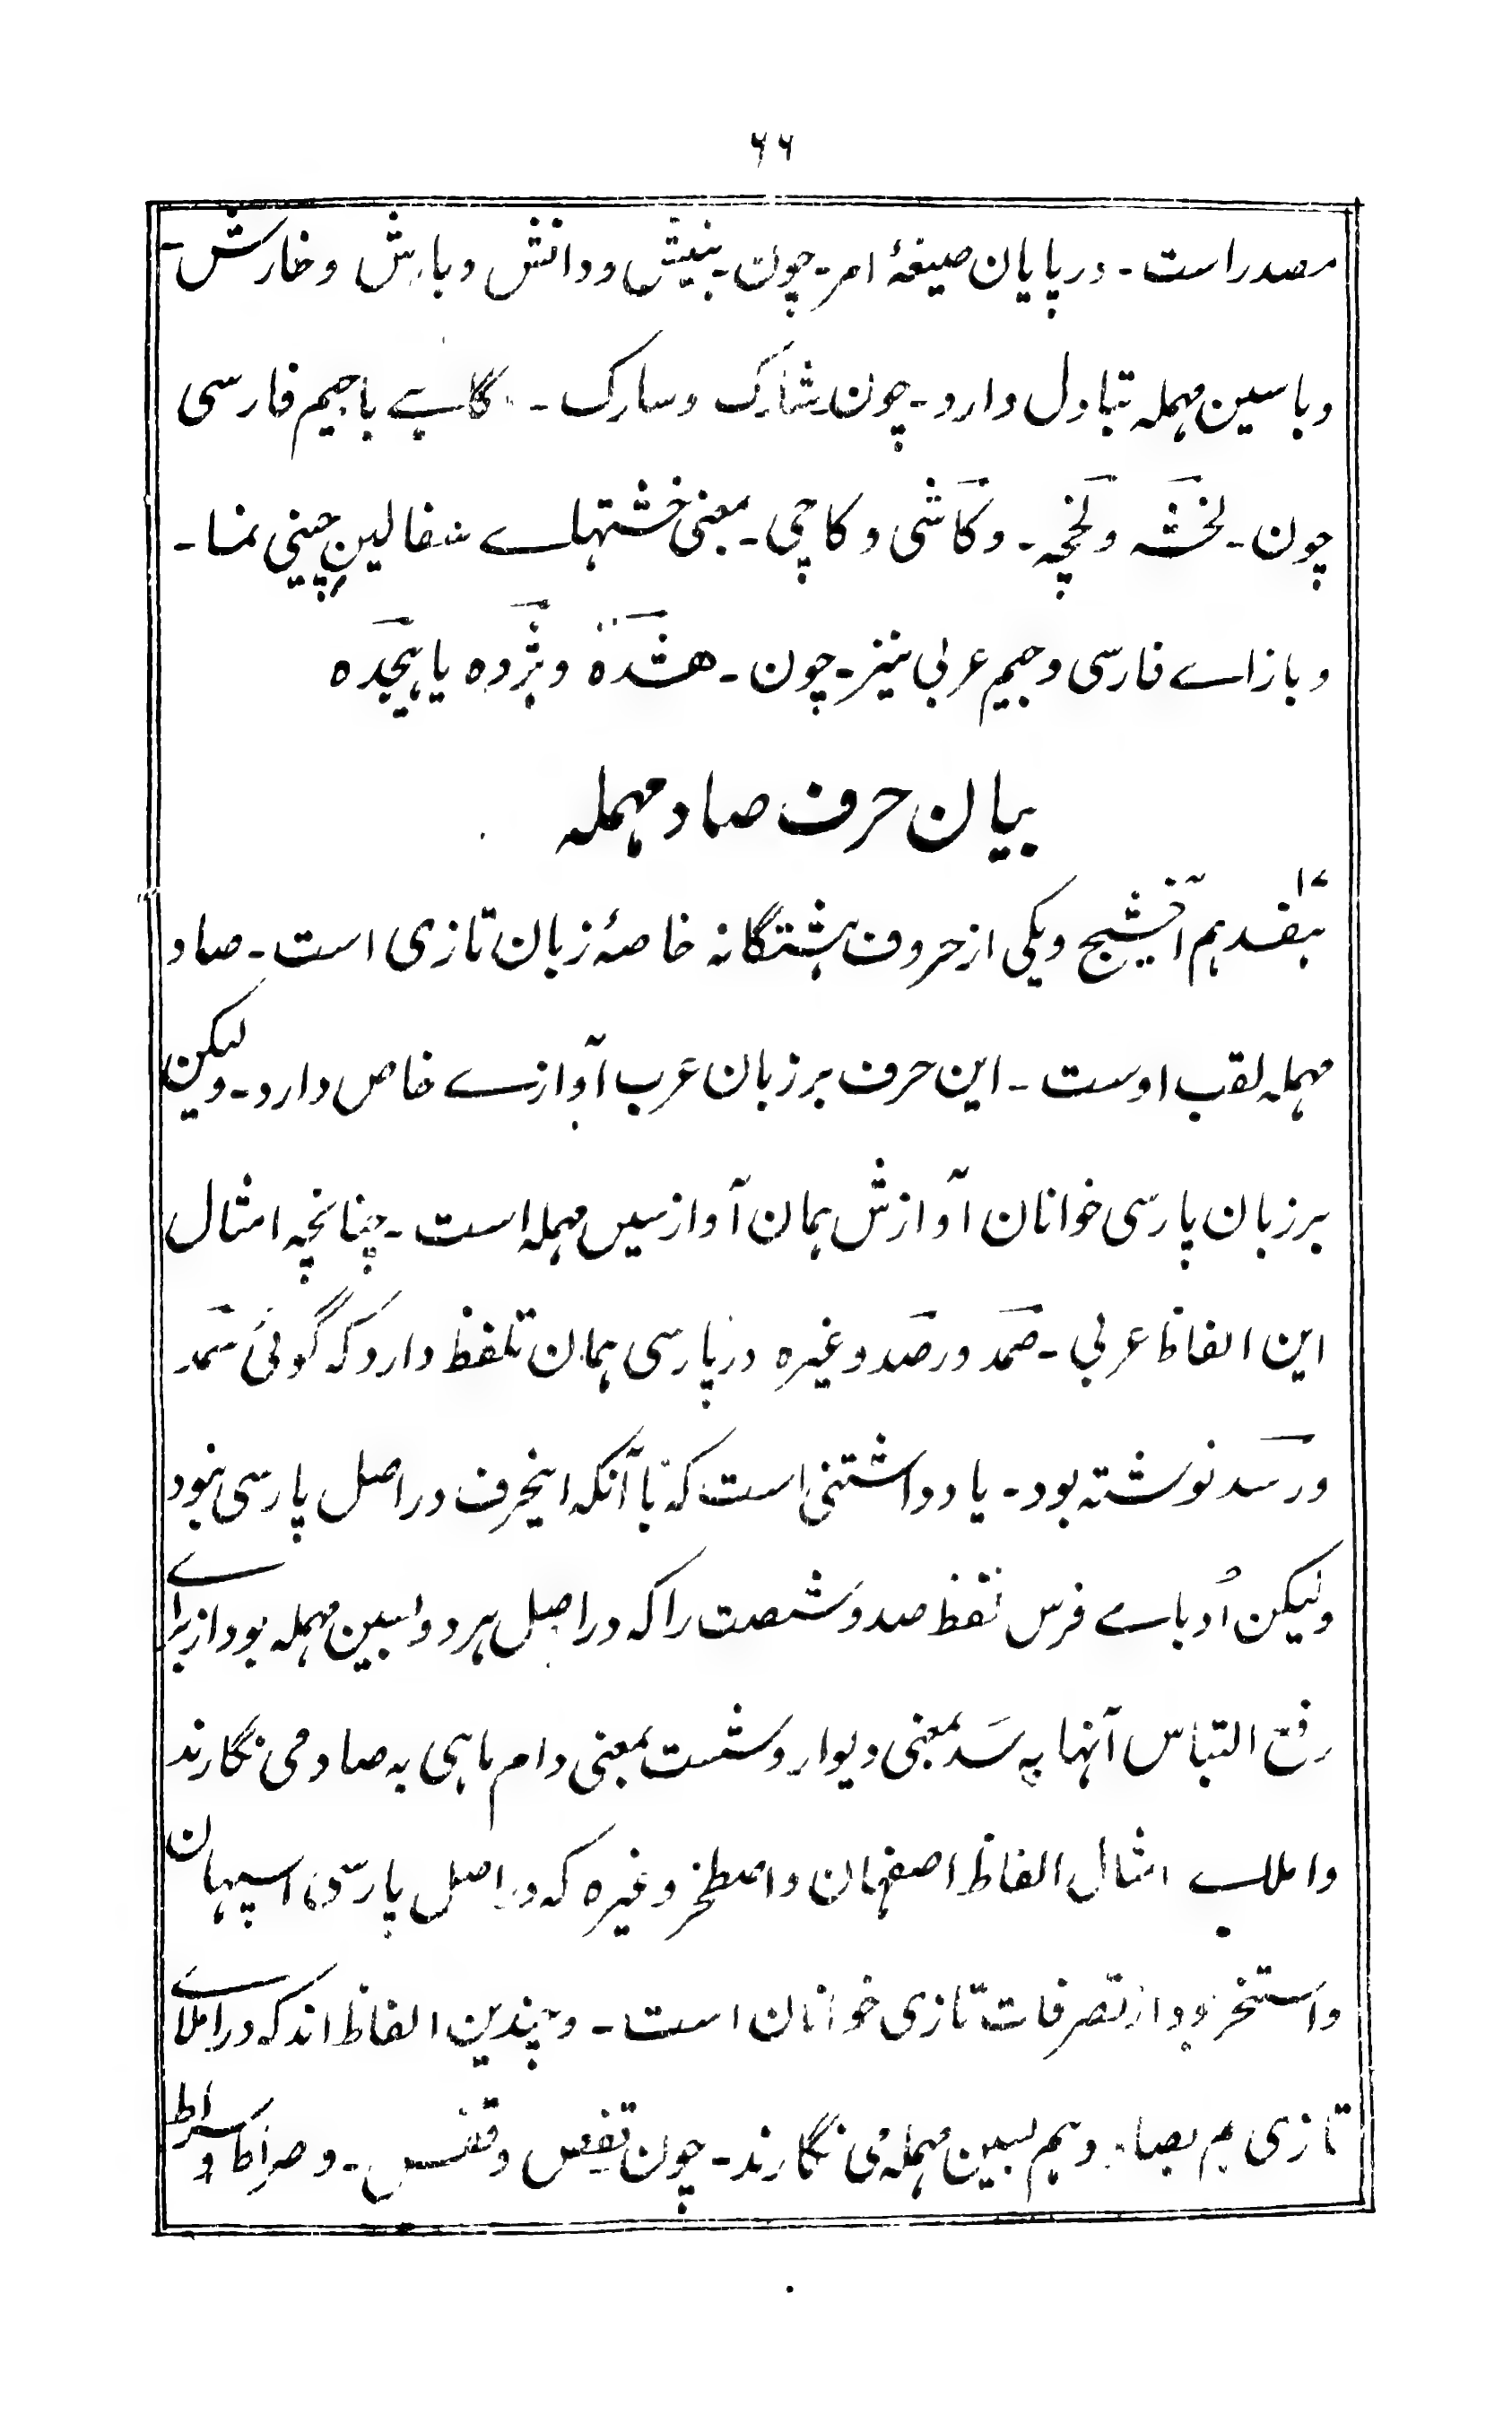 ۶۶
مصدر است - در پایان صیغهٔ امر - چون - بینش و دانش و بارش و خارش -
و با سین مهمله تبادل دارد - چون شارک و سارک - گاہے با جیم فارسی
چون - لخشَه و لَخچه - و کاشی و کاچی - بمعنی خشتہاے سفالینِ چینی نما -
و با زاے فارسی و جیم عربی نیز - چون - هشدَه و هژدَه یا هیجدَه
بیان حرف صاد مهمله
۱۷
هفدهم آخشیج و یکی از حروف هشتگانه خاصهٔ زبان تازی است - صاد
مهمله لقب اوست - این حرف بر زبان عرب آوازے خاص دارد - ولیکن
بر زبان پارسی خوانان آوازش همان آواز سین مهمله است - چنانچه امثال
این الفاظ عربی - صَمَد و رصَد و غیره در پارسی همان تلفظ دارد که گوئی سَمَد
و رسَد نوشته بود - یاد داشتنی است که با آنکه اینحرف در اصل پارسی نبود
ولیکن اُدباے فرس لفظ صد و شصت را که در اصل هر دو بسین مهمله بود از براے
رفع التباس آنها به سَد بمعنی دیوار و شست بمعنی دام ماهی به صاد می نگارند
و املاے امثال الفاظ اصفهان و اصطخر و غیره که در اصل پارسی اسپهان
و استخر بود از تصرفات تازی خوانان است - و چندین الفاظ اند که در املاے
تازی هم بصاد و هم بسین مهمله می نگارند - چون قفص و قفس - و صراط و سراط